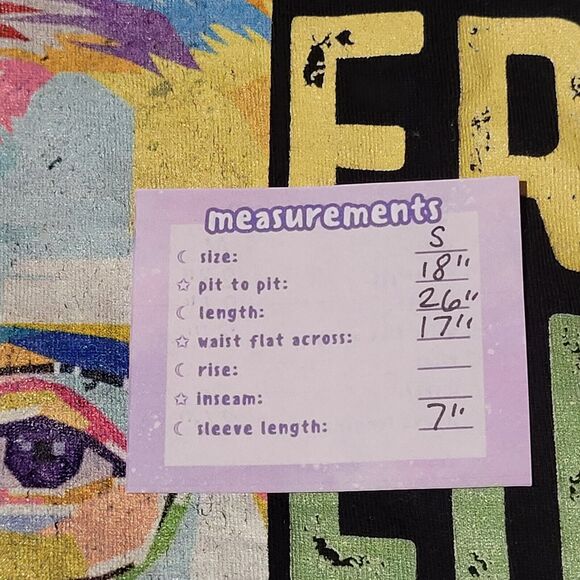 ER
measurements
size: S
pit to pit: 18"
length: 26"
waist flat across: 17"
rise:
inseam:
sleeve length: 7"